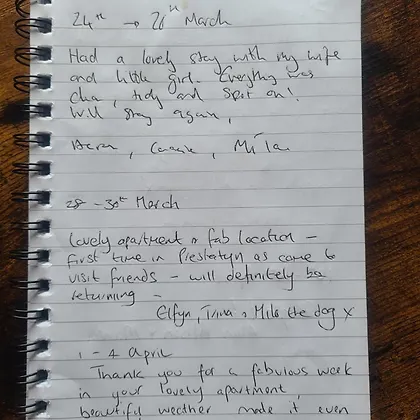 24th → 26th March
Had a lovely stay with my wife
and little girl. Everything was
, tidy and spot on!
Will stay again,
, , Mila
28 - 30th March
Lovely apartment & fab location -
first time in Prestatyn as came to
visit friends - will definitely be
returning -
Elfyn, Trina & Milo the dog x
1 - 4 April
Thank you for a fabulous week
in your lovely apartment,
beautify weather made it even